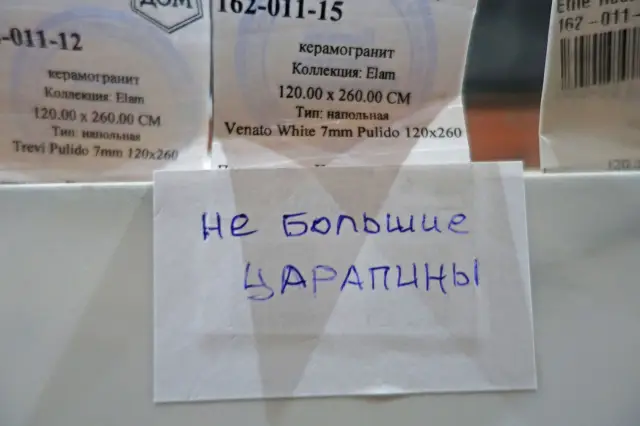 ДОМ
-011-12
керамогранит
Коллекция: Elam
120.00 x 260.00 СМ
Тип: напольная
Trevi Pulido 7mm 120x260
162-011-15
керамогранит
Коллекция: Elam
120.00 x 260.00 СМ
Тип: напольная
Venato White 7mm Pulido 120x260
162-011-
Не большие
царапины